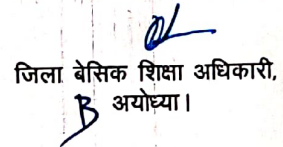 जिला बेसिक शिक्षा अधिकारी,
अयोध्या।